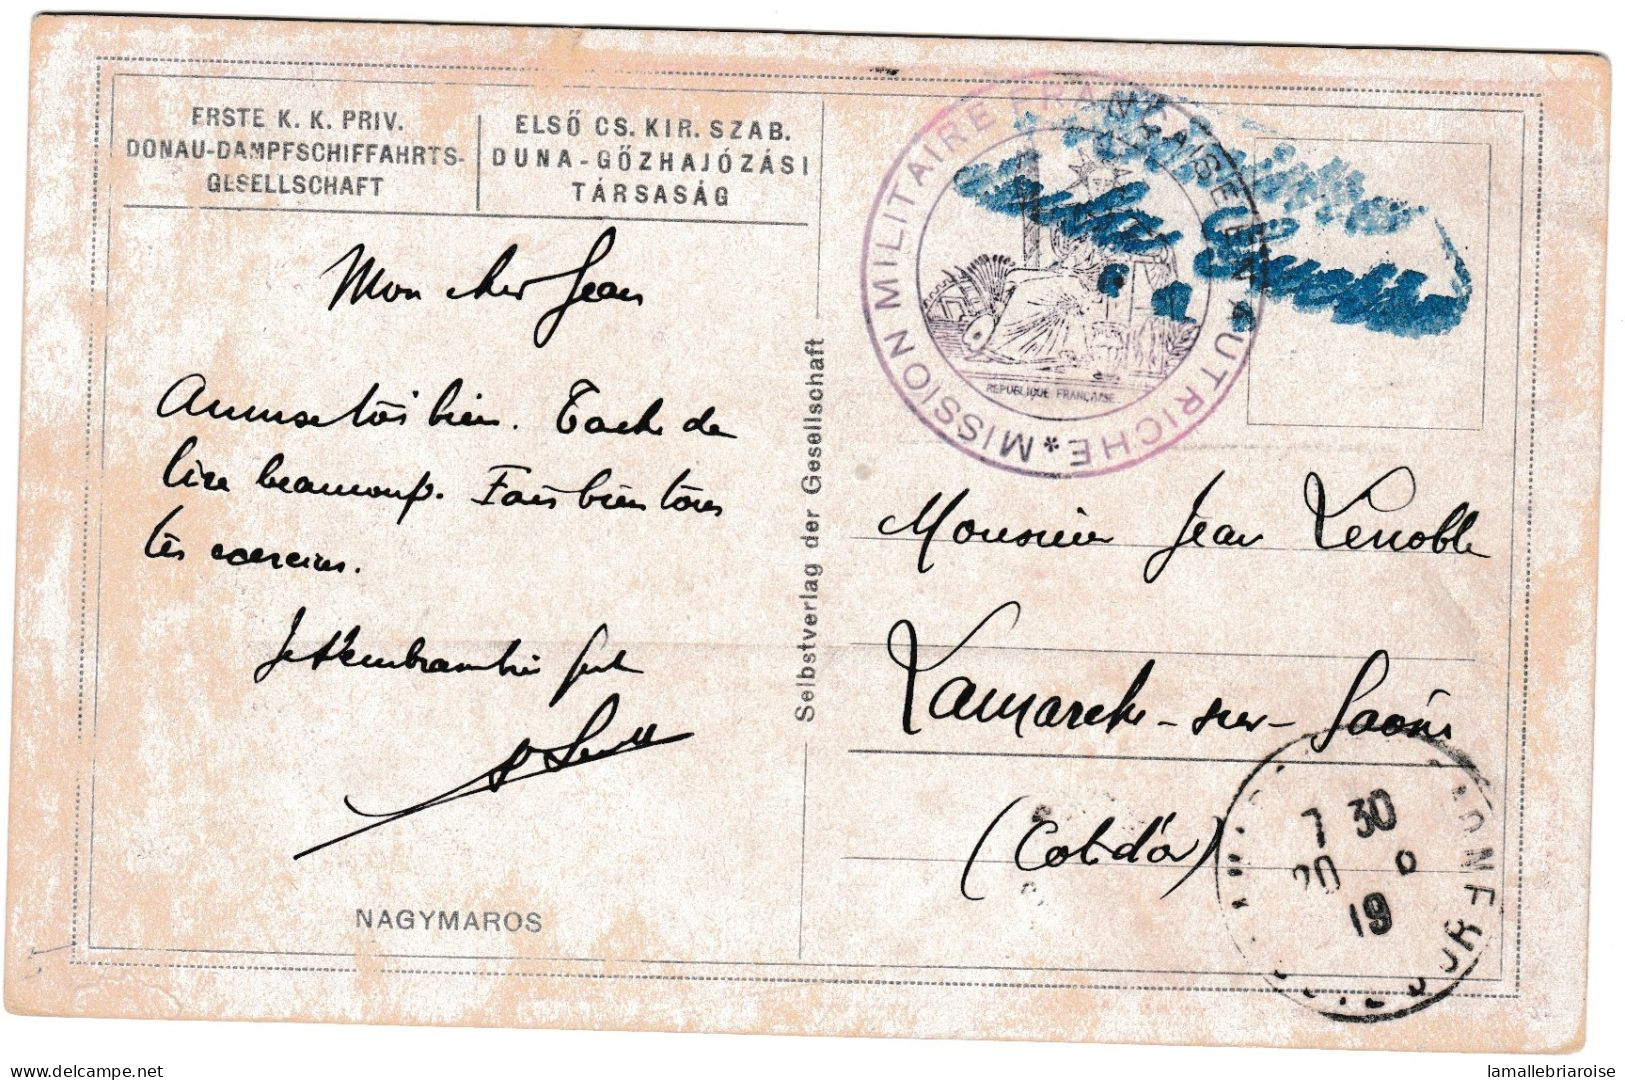 ERSTE K. K. PRIV.
DONAU-DAMPFSCHIFFAHRTS-
GESELLSCHAFT
ELSŐ CS. KIR. SZAB.
DUNA-GŐZHAJÓZÁSI
TÁRSASÁG
Mon cher Jean
Amuse toi bien. Tache de
lire beaucoup. Fais bien tous
tes exercices.
Je t'embrasse
NAGYMAROS
Selbstverlag der Gesellschaft
* MISSION MILITAIRE FRANÇAISE EN AUTRICHE
REPUBLIQUE FRANÇAISE
Monsieur Jean Lenoble
Lamarche-sur-Saône
(Cote d'or)
7 30
20
19
delcampe.net
lamallebriaroise